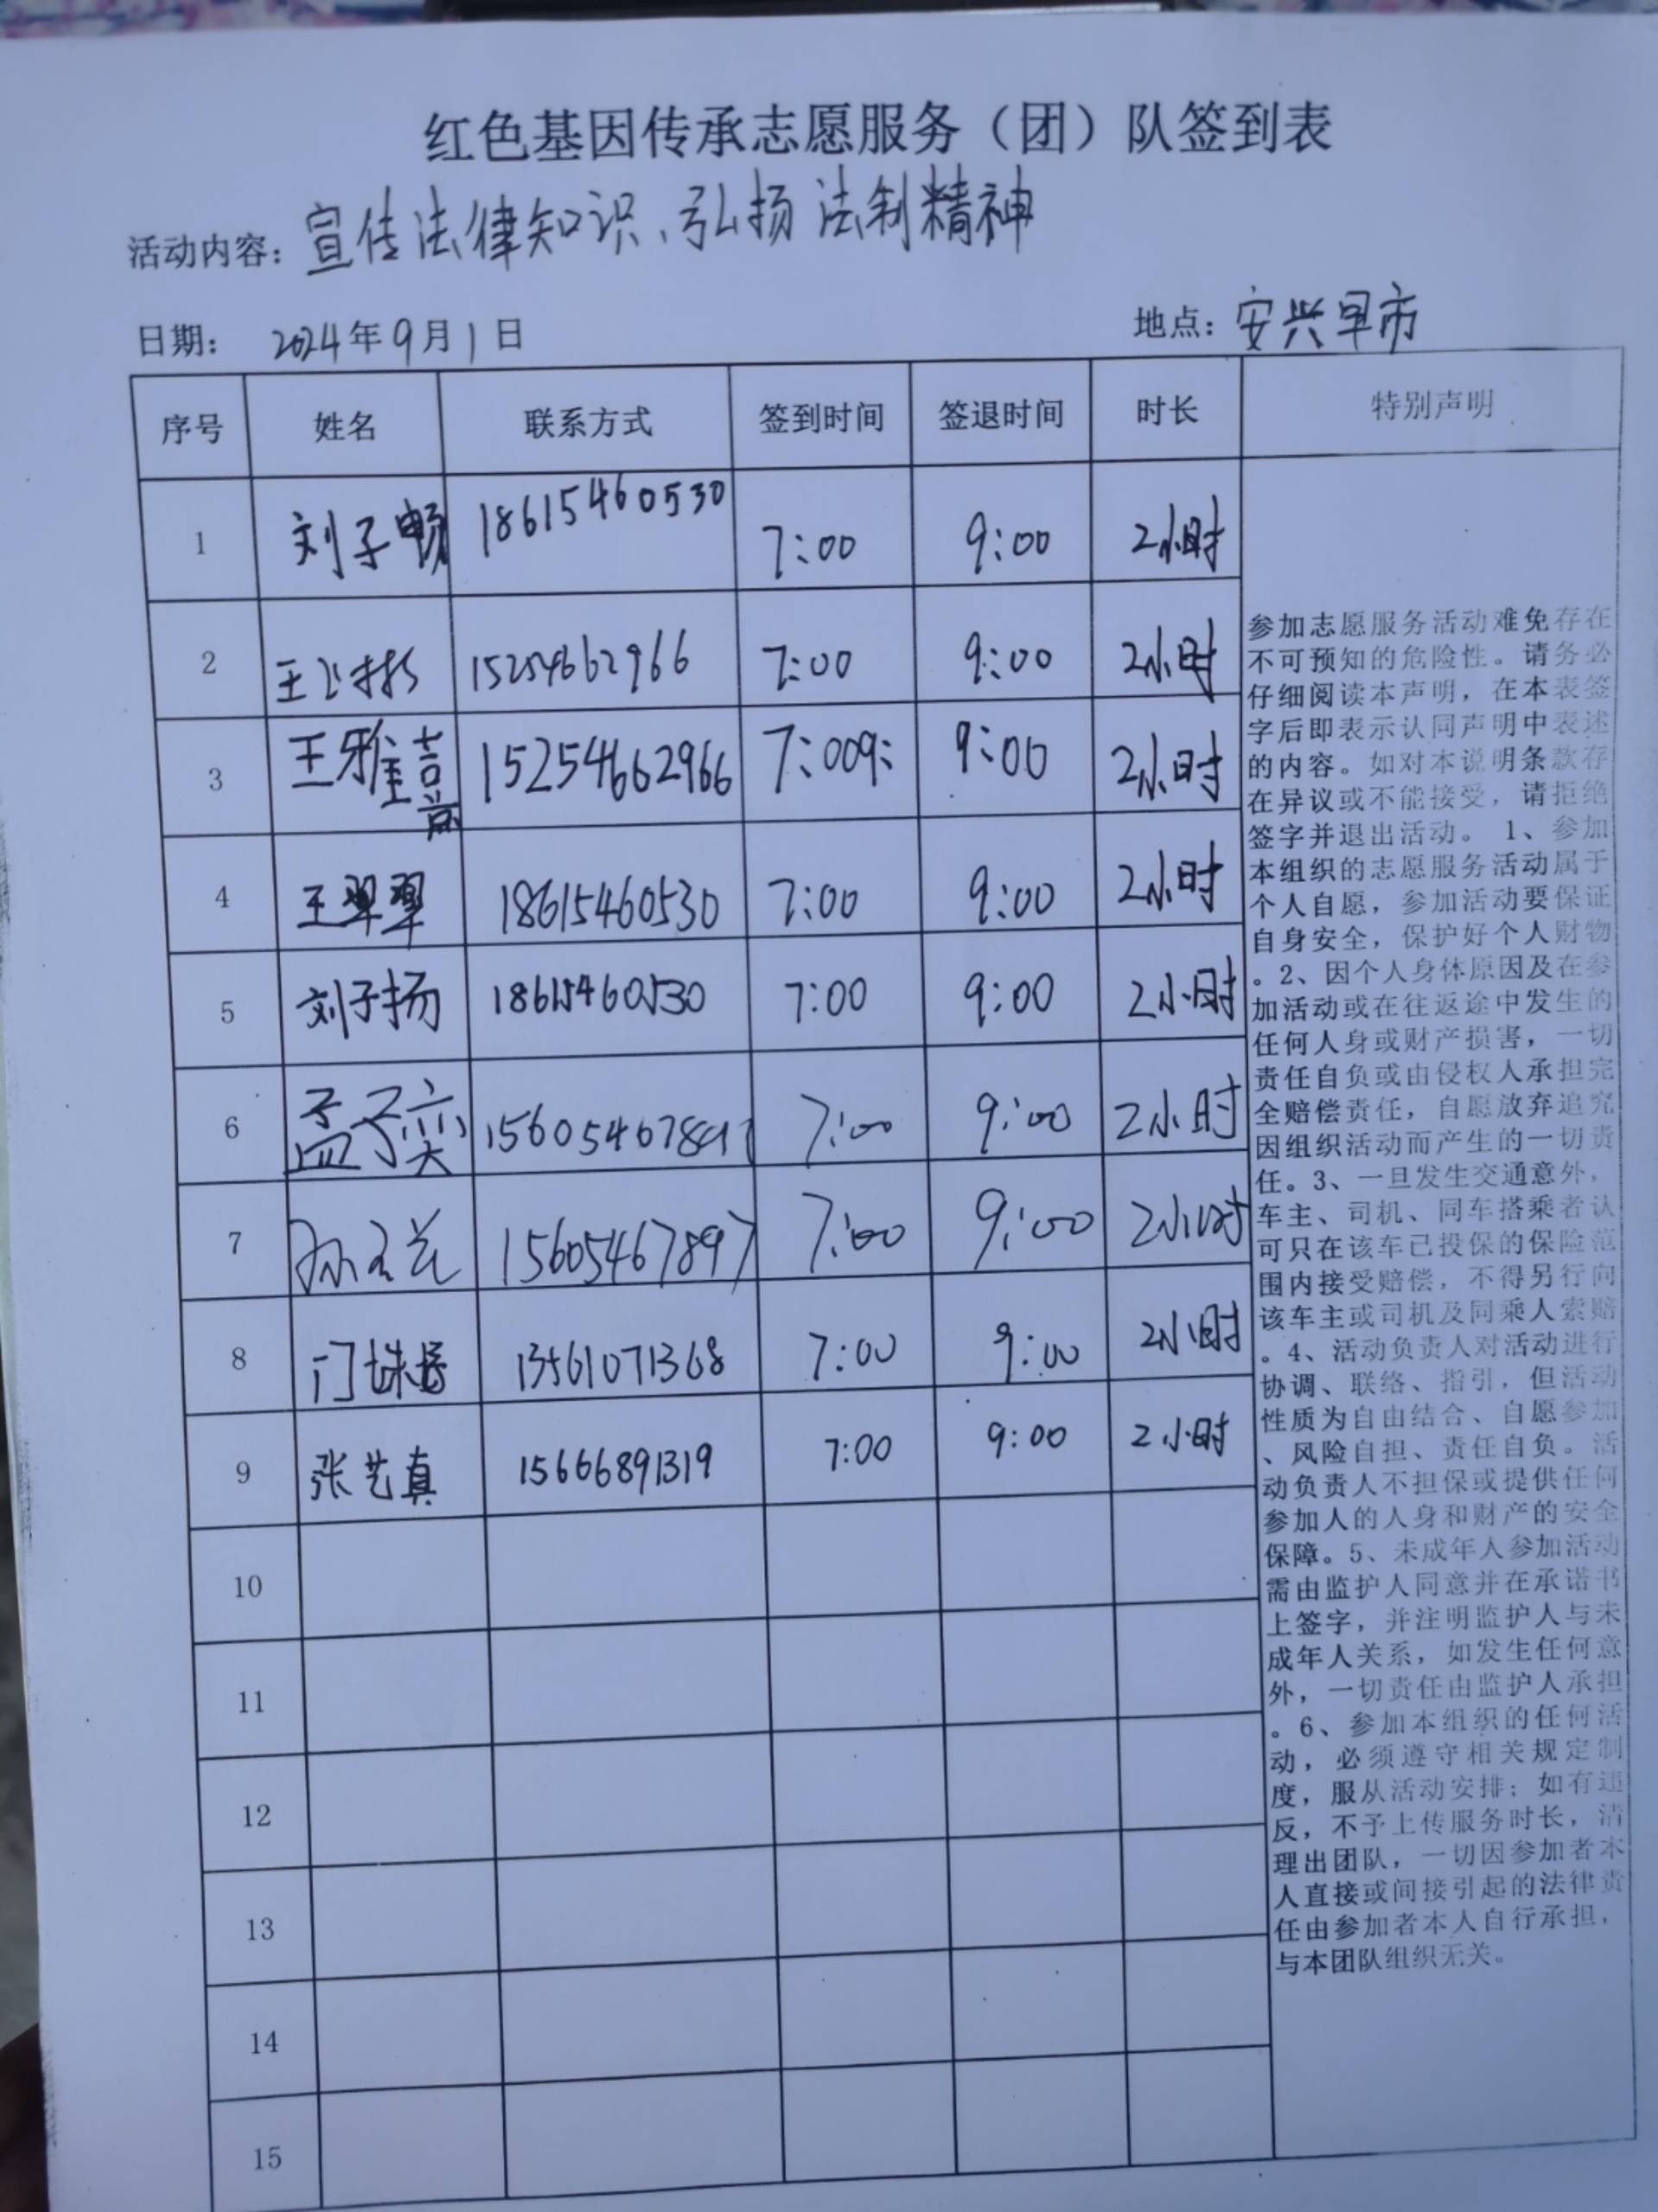 红色基因传承志愿服务（团）队签到表
活动内容：宣传法律知识、弘扬法制精神
日期： 2024年9月1日 地点：安兴早市
序号 姓名 联系方式 签到时间 签退时间 时长 特别声明
1 刘子畅 18615460530 7:00 9:00 2小时
2 王 15254662966 7:00 9:00 2小时
3 王雅喆 15254662966 7:009: 9:00 2小时
4 王翠翠 18615460530 7:00 9:00 2小时
5 刘子扬 18615460530 7:00 9:00 2小时
6 孟子奕 15605467897 7:00 9:00 2小时
7 15605467897 7:00 9:00 2小时
8 门姝 13561071368 7:00 9:00 2小时
9 张艺真 15666891319 7:00 9:00 2小时
10
11
12
13
14
15
参加志愿服务活动难免存在
不可预知的危险性。请务必
仔细阅读本声明，在本表签
字后即表示认同声明中表述
的内容。如对本说明条款存
在异议或不能接受，请拒绝
签字并退出活动。1、参加
本组织的志愿服务活动属于
个人自愿，参加活动要保证
自身安全，保护好个人财物
。2、因个人身体原因及在参
加活动或在往返途中发生的
任何人身或财产损害，一切
责任自负或由侵权人承担完
全赔偿责任，自愿放弃追究
因组织活动而产生的一切责
任。3、一旦发生交通意外，
车主、司机、同车搭乘者认
可只在该车已投保的保险范
围内接受赔偿，不得另行向
该车主或司机及同乘人索赔
。4、活动负责人对活动进行
协调、联络、指引，但活动
性质为自由结合、自愿参加
、风险自担、责任自负。活
动负责人不担保或提供任何
参加人的人身和财产的安全
保障。5、未成年人参加活动
需由监护人同意并在承诺书
上签字，并注明监护人与未
成年人关系，如发生任何意
外，一切责任由监护人承担
。6、参加本组织的任何活
动，必须遵守相关规定制
度，服从活动安排；如有违
反，不予上传服务时长，清
理出团队，一切因参加者本
人直接或间接引起的法律责
任由参加者本人自行承担，
与本团队组织无关。